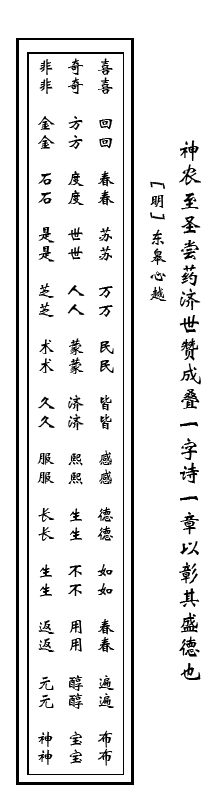 神农至圣尝药济世赞成叠一字诗一章以彰其盛德也
[明]东皋心越
喜喜回回春春苏苏万万民民皆皆感感德德如如春春遍遍布布
奇奇方方度度世世人人蒙蒙济济熙熙生生不不用用醇醇宝宝
非非金金石石是是芝芝术术久久服服长长生生返返元元神神